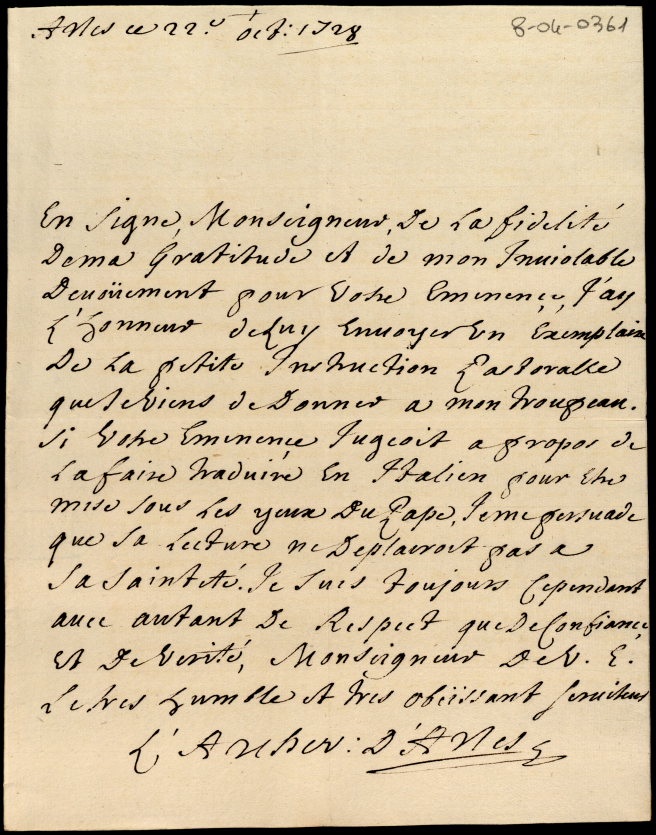 Arles ce 22.e oct: 1728
8-04-0361
En signe, Monseigneur, De La fidelité
Dema Gratitude et de mon Inuiolable
Deuoüement pour Votre Eminence, J'ay
L'Honneur deluy Envoyer un Exemplaire
De La petite Instruction Pastoralle
queJeviens deDonner a mon troupeau.
Si Votre Eminence Jugeoit apropos de
Lafaire traduire En Italien pour Etre
mise sous Les yeux Du Pape, Jeme persuade
que Sa Lecture neDeplairoit pas a
SaSainteté. Je suis toujours Cependant
auec autant De Respect queDeConfiance
Et DeVerité, Monseigneur DeV. E.
Letres humble et tres obeissant seruiteur
L'Archev: D'Arles